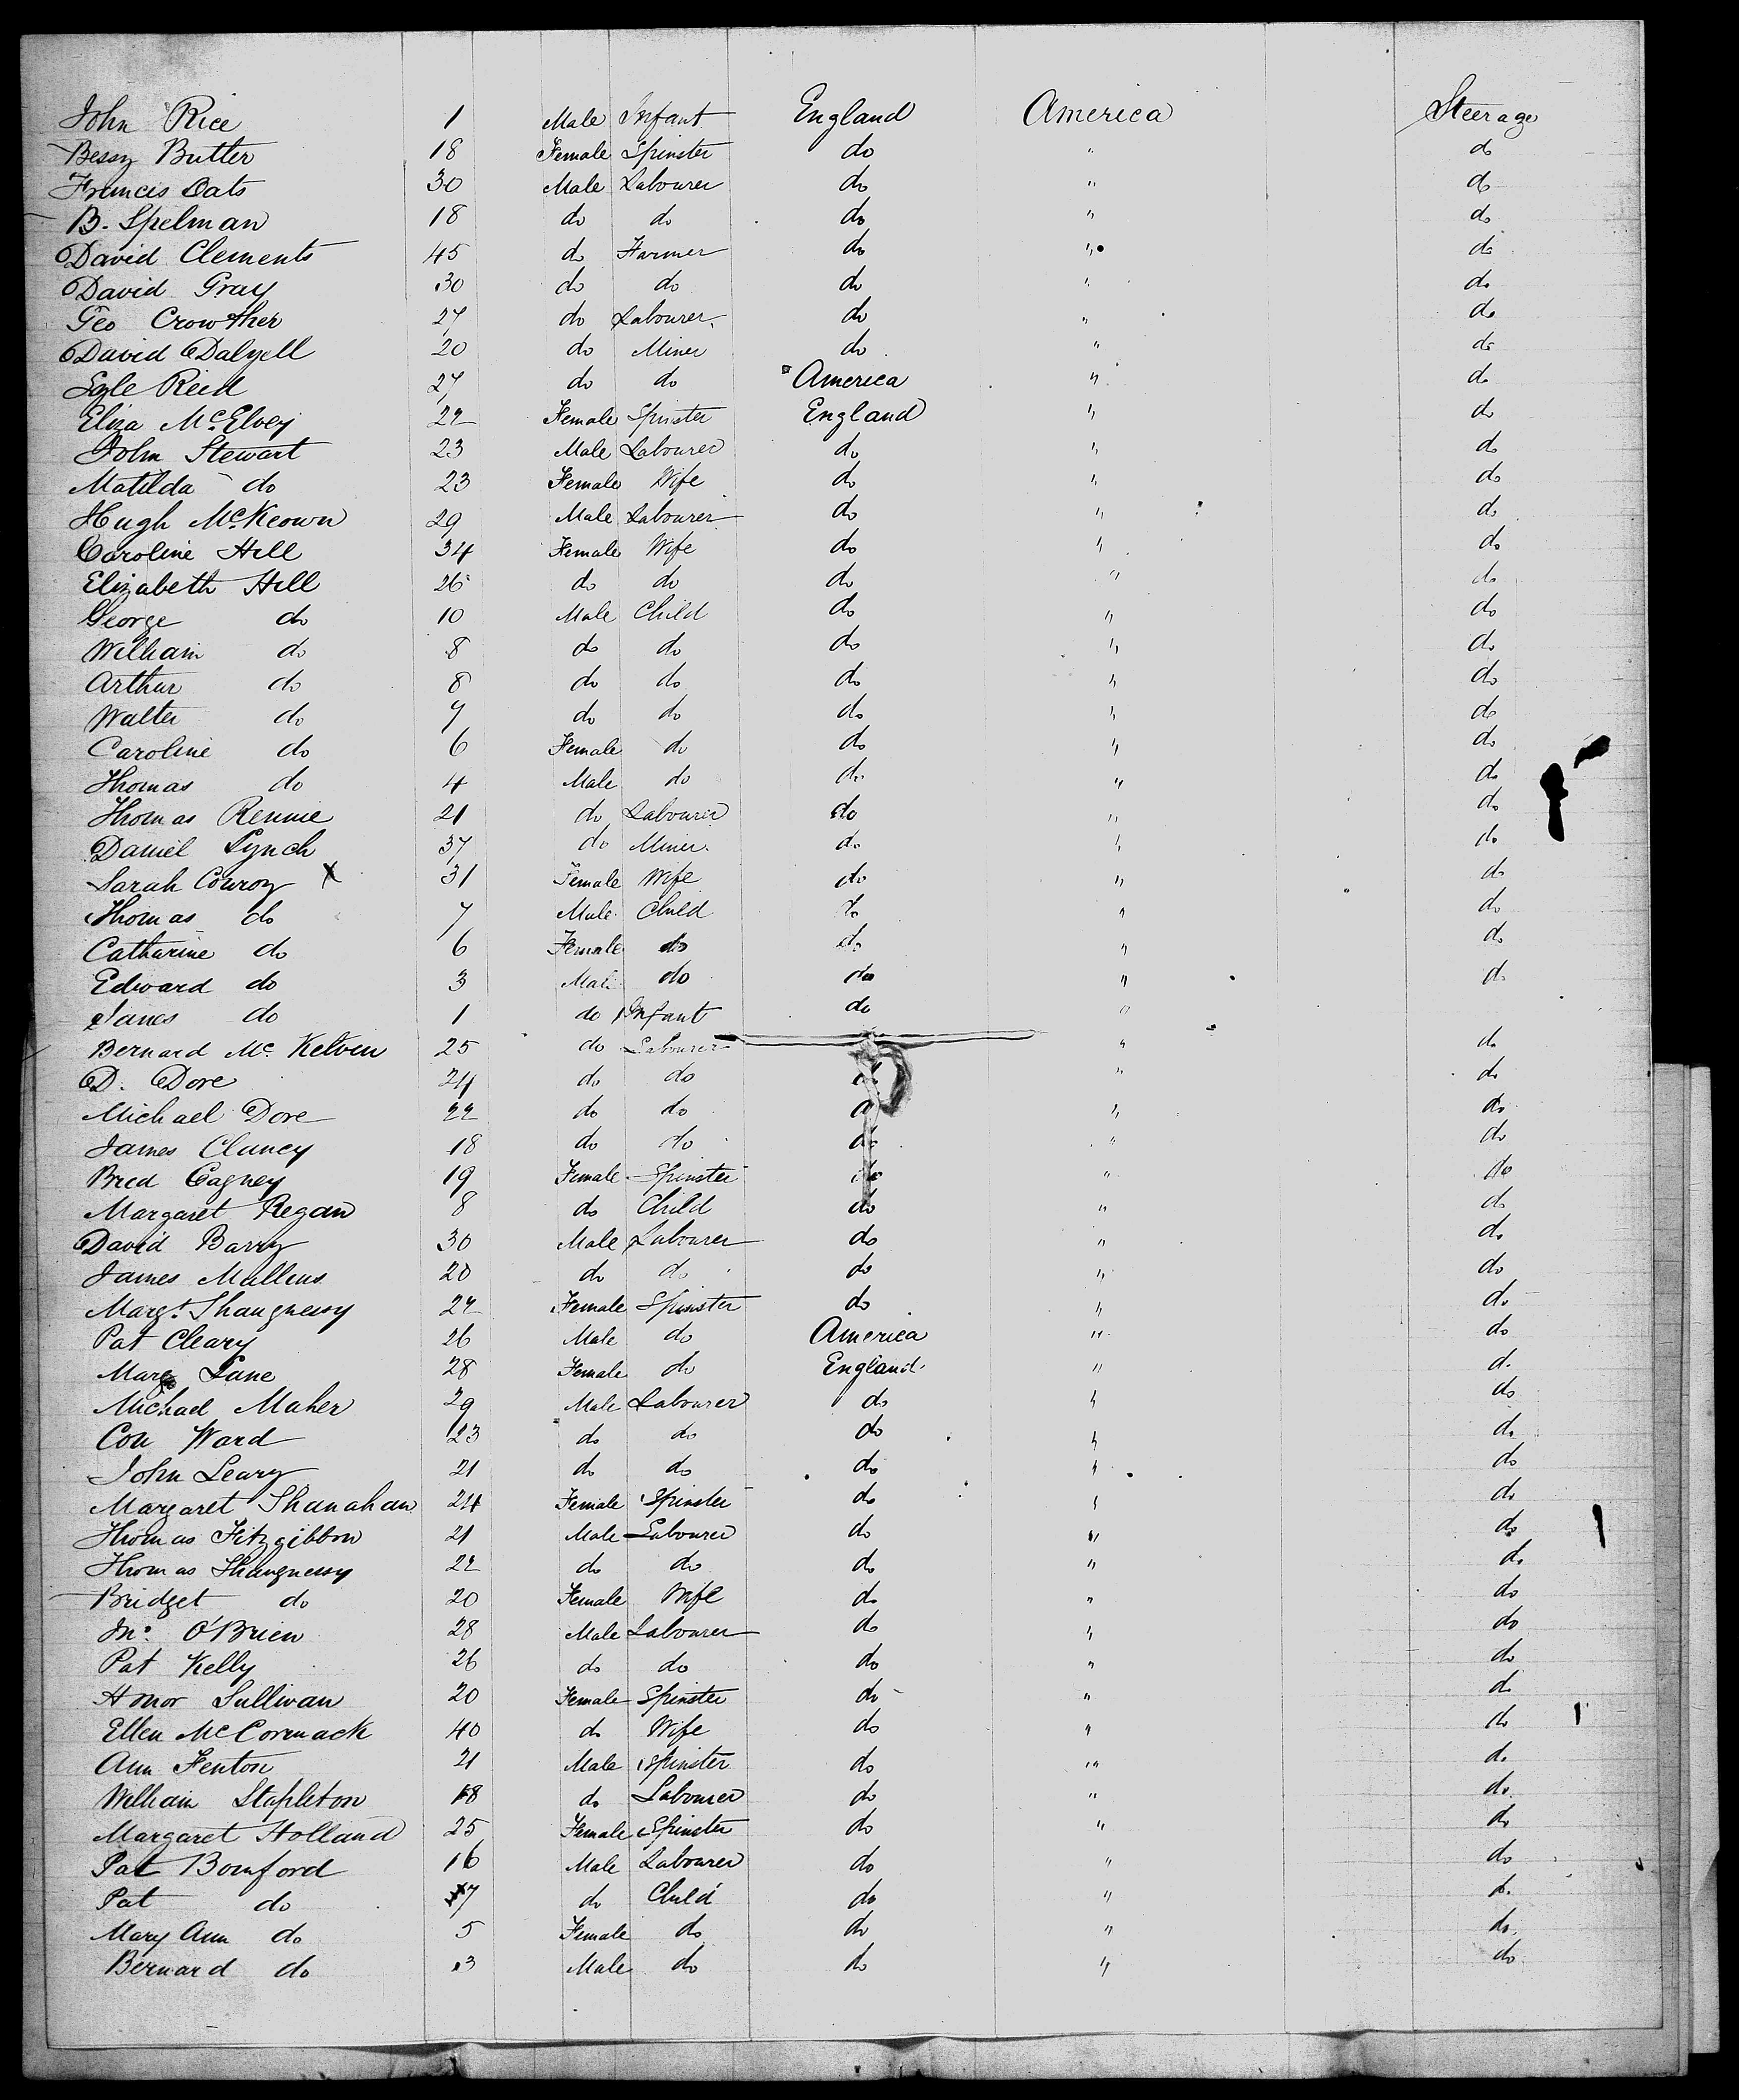 John Rice 1 Male Infant England America Steerage
Bessy Butter 18 Female Spinster do " do
Francis Oats 30 Male Labourer do " do
B. Spelman 18 do do do " do
David Clements 45 do Farmer do " do
David Gray 30 do do do " do
Geo Crowther 27 do Labourer do " do
David Dalyell 20 do Miner do " do
Lyle Reed 27 do do America " do
Eliza McElvey 22 Female Spinster England " do
John Stewart 23 Male Labourer do " do
Matilda do 23 Female Wife do " do
Hugh McKeown 29 Male Labourer do " do
Caroline Hill 34 Female Wife do " do
Elizabeth Hill 26 do do do " do
George do 10 Male Child do " do
William do 8 do do do " do
Arthur do 8 do do do " do
Walter do 7 do do do " do
Caroline do 6 Female do do " do
Thomas do 4 Male do do " do
Thomas Rennie 21 do Labourer do " do
Daniel Lynch 37 do Miner do " do
Sarah Conroy X 31 Female Wife do " do
Thomas do 7 Male Child do " do
Catharine do 6 Female do do " do
Edward do 3 Male do do " do
James do 1 do Infant do "
Bernard Mc Kelvin 25 do Labourer " do
D. Dore 24 do do do " do
Michael Dore 22 do do do " do
James Clancy 18 do do do " do
Brid Gagney 19 Female Spinster do " do
Margaret Regan 8 do Child do " do
David Barry 30 Male Labourer do " do
James Mullins 20 do do do " do
Margt. Shaugnessy 22 Female Spinster do " do
Pat Cleary 26 Male do America " do
Marg Lane 28 Female do England " do
Michael Maher 29 Male Labourer do " do
Con Ward 23 do do do " do
John Leary 21 do do do " do
Margaret Shanahan 24 Female Spinster do " do
Thomas Fitzgibbon 21 Male Labourer do " do
Thomas Shaugnessy 22 do do do " do
Bridget do 20 Female Wife do " do
Jno. O'Brien 28 Male Labourer do " do
Pat Kelly 26 do do do " do
Honor Sullivan 20 Female Spinster do " do
Ellen McCormack 40 do Wife do " do
Ann Fenton 21 Male Spinster do " do
William Stapleton 18 do Labourer do " do
Margaret Holland 25 Female Spinster do " do
Pat Bomford 16 Male Labourer do " do
Pat do 7 do Child do " do
Mary Ann do 5 Female do do " do
Bernard do 3 Male do do " do